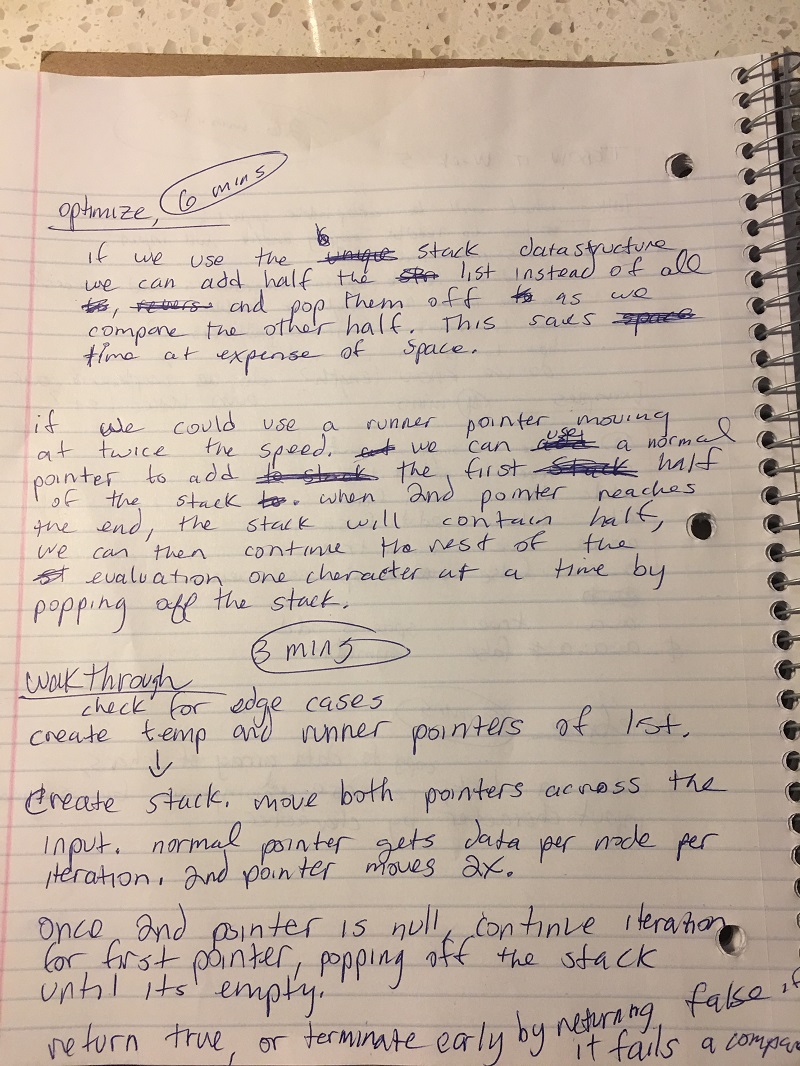 optimize, 6 mins
if we use the stack datastructure
we can add half the list instead of all
, and pop them off as we
compare the other half. This saves
time at expense of space.
if we could use a runner pointer moving
at twice the speed. we can use a normal
pointer to add the first half
of the stack . when 2nd pointer reaches
the end, the stack will contain half,
we can then continue the rest of the
evaluation one character at a time by
popping off the stack.
3 mins
walkthrough
check for edge cases
create temp and runner pointers of list.
↓
Create stack. move both pointers across the
input. normal pointer gets data per node per
iteration. 2nd pointer moves 2x.
Once 2nd pointer is null, continue iteration
for first pointer, popping off the stack
until its empty.
return true, or terminate early by returning false if
it fails a compar